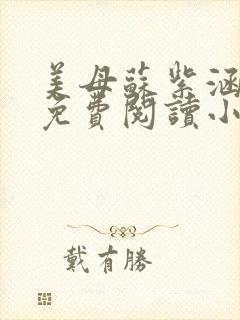 美母蘇紫涵
免費閱讀小
戴有勝